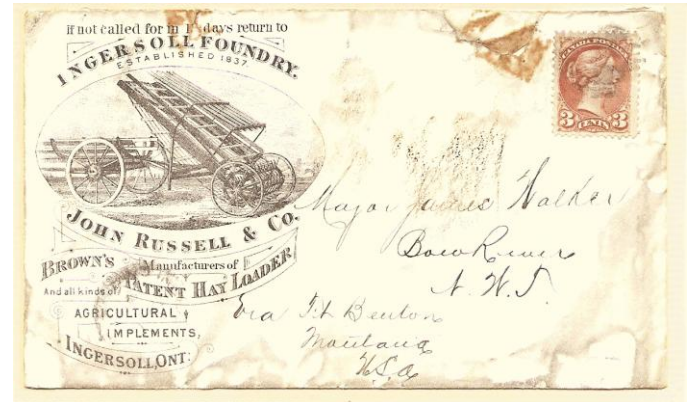 if not called for in 1 days return to
INGERSOLL FOUNDRY.
ESTABLISHED 1837.
JOHN RUSSELL & CO.
Manufacturers of
BROWN'S PATENT HAY LOADER
And all kinds of
AGRICULTURAL
IMPLEMENTS,
INGERSOLL, ONT.
CANADA POSTAGE
3 CENTS 3
Major James Walker
Bow River
N. W. T.
Via Ft Benton
Montana
U.S.A